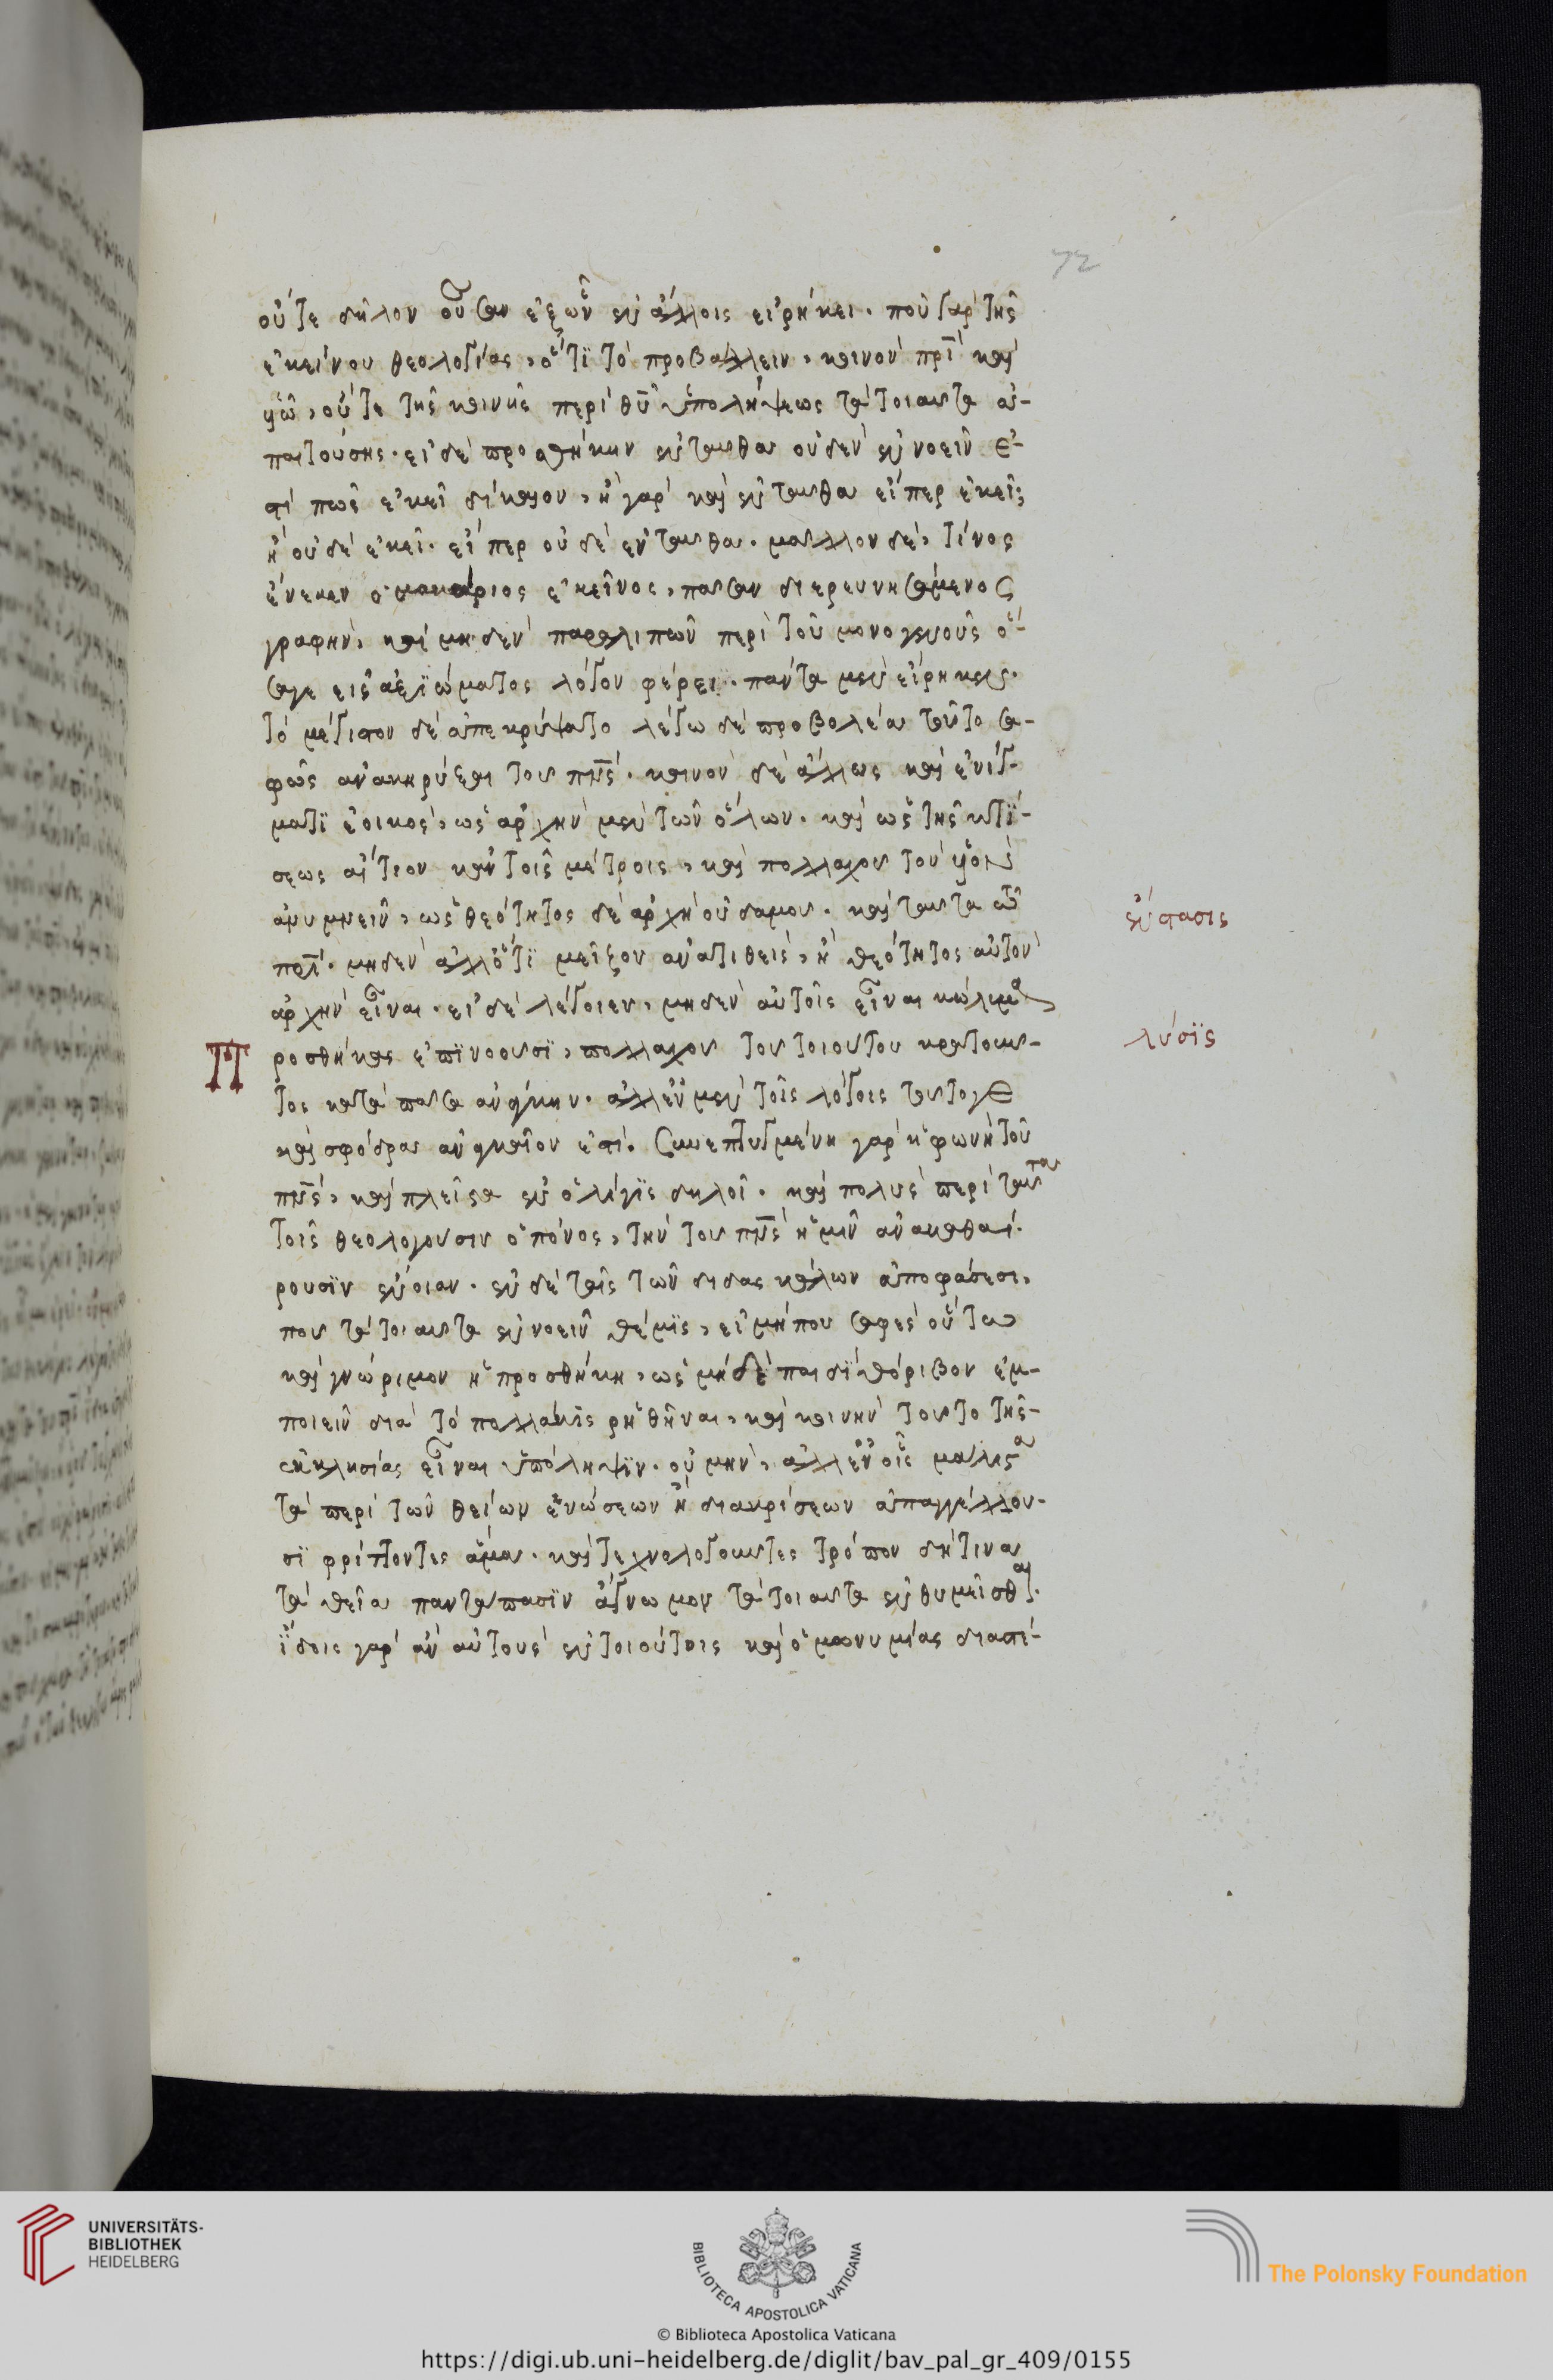 72
οὔτε δῆλον οὖσαν ἐξ ὧν ἐν ἄλλοις εἰρήκει. ποῦ γὰρ τῆς
ἐκείνου θεολογίας, ὅτι τὸ προβάλλειν, κοινὸν πρι καὶ
υιω, οὔτε τῆς κοινῆς περὶ θυ ὑπολήψεως τὰ τοιαῦτα ἀ-
παιτούσης. εἰ δὲ προσθήκην ἐνταῦθα οὐδὲν ἐννοεῖν ἐ-
στί πως ἐκεῖ δίκαιον, ἢ γὰρ καὶ ἐνταῦθα εἴπερ ἐκεῖ;
ἢ οὐδὲ ἐκεῖ. εἴπερ οὐδὲ ἐνταῦθα. μᾶλλον δὲ, τίνος
ἕνεκεν ὁ μακάριος ἐκεῖνος, πᾶσαν διερευνησάμενος
γραφὴν, καὶ μηδὲν παραλιπὼν περὶ τοῦ μονογενοῦς ὅ-
σαγε εἰς ἀξιώματος λόγον φέρει. πάντα μὲν εἴρηκεν.
τὸ μέγιστον δὲ ἀπεκρύψατο λέγω δὲ προβολέα τοῦτο σα-
φῶς ἀνακηρύξαι τοῦ πνς. κοινὸν δὲ ἄλλως καὶ αἰνίγ-
ματι ἐοικὸς, ὡς ἀρχὴν μὲν τῶν ὅλων. καὶ ὡς τῆς κτί-
σεως αἴτιον κἀν τοῖς μέτροις, καὶ πολλαχοῦ τὸν
ἀνυμνεῖν, ὡς θεότητος δὲ ἀρχὴ οὐδαμοῦ. καὶ ταῦτα τῶ
πρι. μηδὲν ἄλλό τι μεῖζον ἀνατιθεὶς, ἢ θεότητος αὐτὸν
ἀρχὴν εἶναι. εἰ δὲ λέγοιεν, μηδὲν αὐτοῖς εἶναι κώλυμα
Προσθήκας ἐπινοοῦσι, πολλαχοῦ τοῦ τοιούτου κρατοῦν-
τος κατὰ πᾶσα ἀνάγκην. ἀλλ' ἐν μὲν τοῖς λόγοις τοῦτό γε
καὶ σφόδρα ἀναγκαῖον ἐστί. Συνεπτυγμένη γὰρ ἡ φωνὴ τοῦ
πνς, καὶ πλεῖστα ἐν ὀλίγοις δηλοῖ. καὶ πολὺς περὶ ταῦτα
τοῖς θεολογοῦσιν ὁ πόνος, τὴν τοῦ πνς ἡμῖν ἀνακαθαί-
ρουσιν ἔννοιαν. ἐν δὲ ταῖς τῶν διδασκάλων ἀποφάσεσι,
ποῦ τὰ τοιαῦτα ἐννοεῖν θέμις, εἰ μήπου σαφὲς οὕτω
καὶ γνώριμον ἡ προσθήκη, ὡς μηδὲ παισὶ θόρυβον ἐμ-
ποιεῖν διὰ τὸ πολλάκις ρηθῆναι, καὶ κοινὴν τοῦτο τῆς
ἐκκλησίας εἶναι ὑπόληψιν. οὐ μὴν, ἀλλ' ἐν οἷς μάλιστα
τὰ περὶ τῶν θείων ἑνώσεων ἢ διακρίσεων ἀπαγγέλλου-
σι φρίττοντες ἅμα. καὶ τεχνολογοῦντες τρόπον δή τινα
τὰ θεῖα παντάπασιν ἄγνωμον τὰ τοιαῦτα ἐνθυμεῖσθαι.
ἴδοις γὰρ ἂν αὐτοὺς ἐν τοιούτοις καὶ ὁμωνυμίας διαστί-
ἔνστασις
λύσις
UNIVERSITÄTS-
BIBLIOTHEK
HEIDELBERG
BIBLIOTECA APOSTOLICA VATICANA
The Polonsky Foundation
© Biblioteca Apostolica Vaticana
https://digi.ub.uni-heidelberg.de/diglit/bav_pal_gr_409/0155